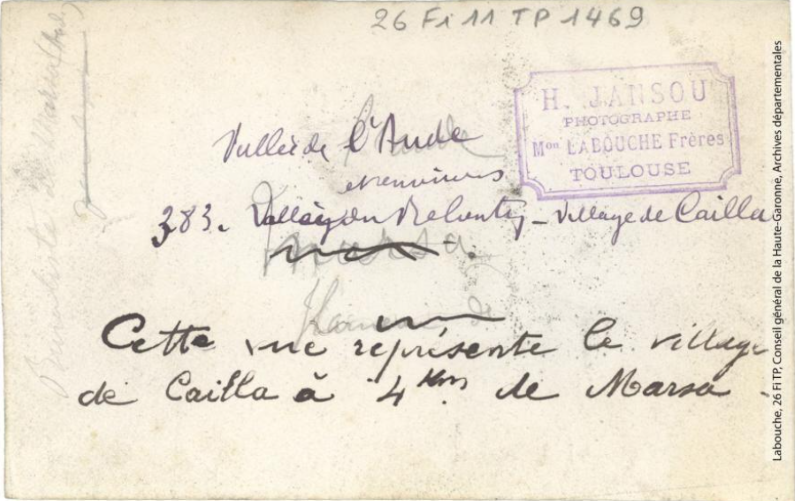 26 Fi 11 TP 1469
H. JANSOU
PHOTOGRAPHE
Mon LABOUCHE Frères
TOULOUSE
Vallée de l'Aude
et environs
383. Vallée du Rebenty - Village de Cailla
Marsa
Cette vue représente le village
de Cailla à 4 Km de Marsa.
Labouche, 26 FI TP, Conseil général de la Haute-Garonne, Archives départementales